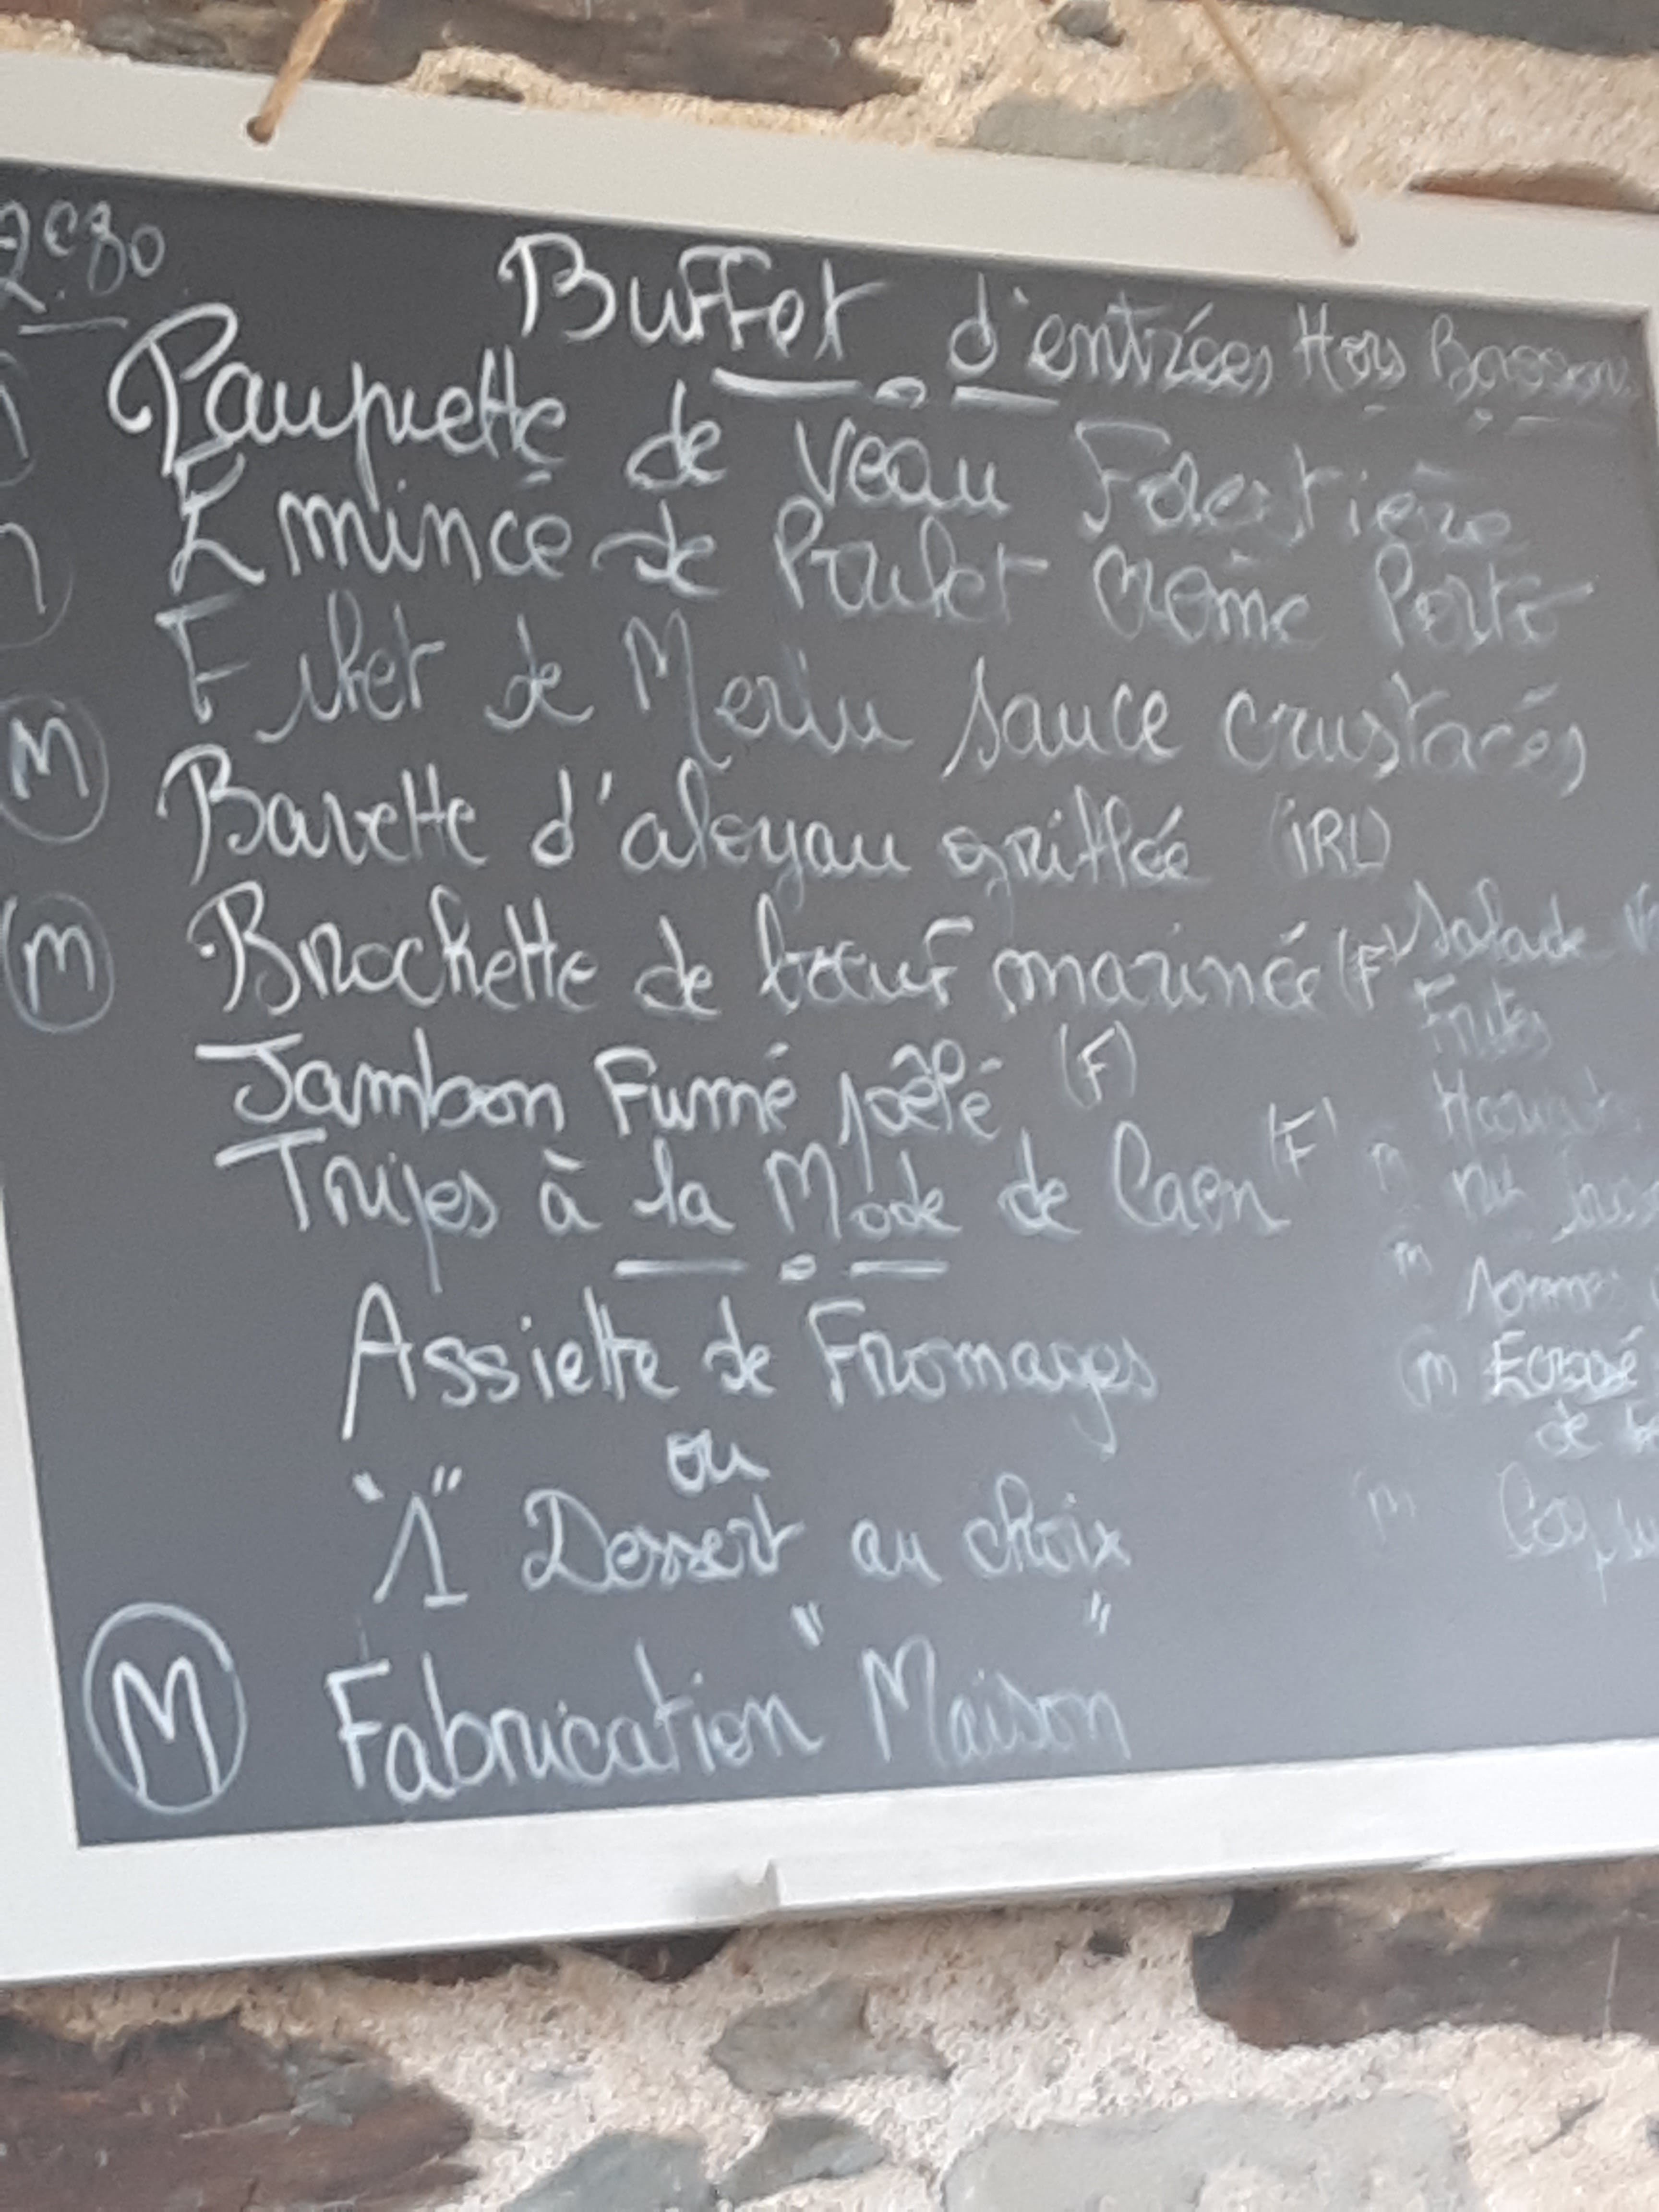 2€80
Buffet d'entrées Hors Boisson
Paupiette de Veau Forestière
Emincé de Poulet crème Porto
(M) Filet de Merlu sauce crustacés
Bavette d'aloyau grillée (IRL)
(M) Brochette de bœuf marinée (F)
Jambon Fumé poêlé (F)
Tripes à la Mode de Caen (F)
Assiette de Fromages
ou
"1" Dessert au choix
(M) Fabrication "Maison"
Salade
Frites
Haricots
Riz
Pommes
(M) Ecrasé
de